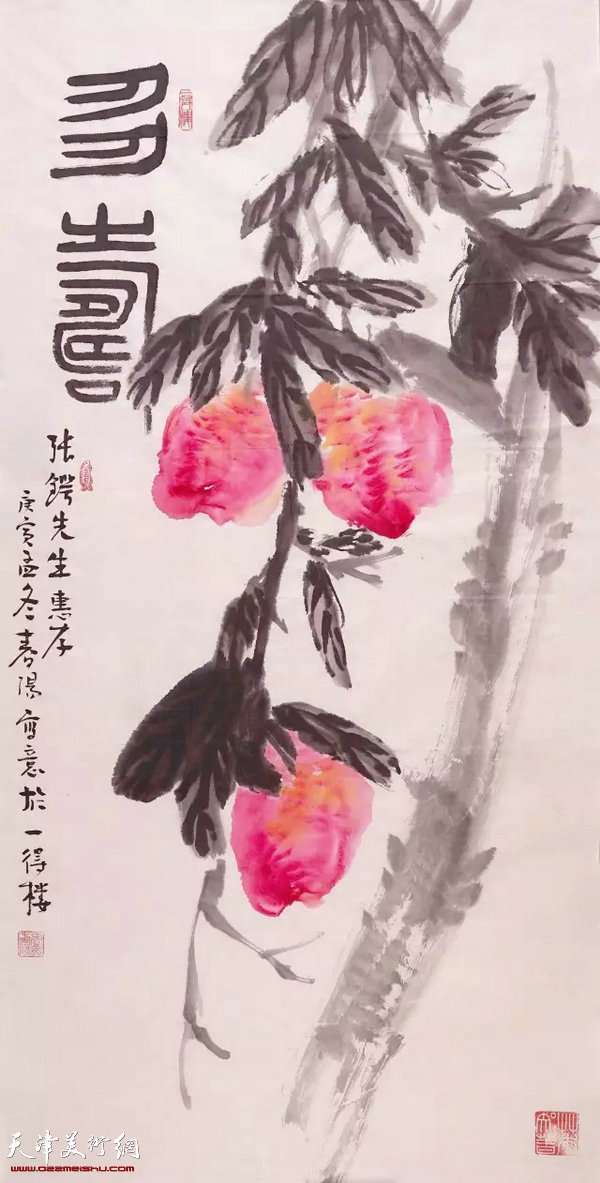 多寿
张锷先生惠存
庚寅孟冬春阳写意于一得楼
天津美術網
www.022meishu.com